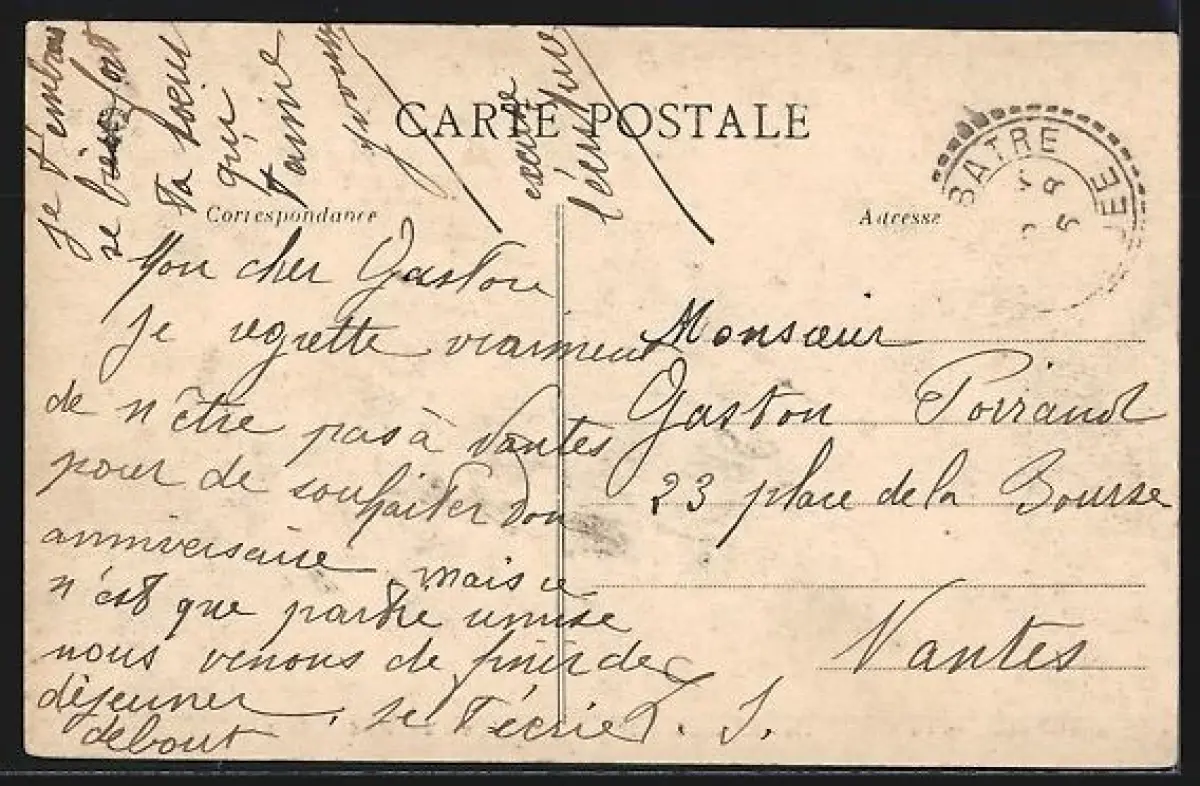 CARTE POSTALE
Correspondance
Adresse
BATRE
Mon cher Gaston
Je regrette vraiment
de n'être pas à Nantes
pour de souhaiter don
anniversaire mais ce
n'est que partie remise
nous venons de finir de
déjeuner. Je t'écrie
debout
T. S.
Je t'embrasse
bien fort
ta sœur
qui
t'aime
Yvonne
excuse
l'écriture
Monsœur
Gaston Poiraud
23 place de la Bourse
Nantes